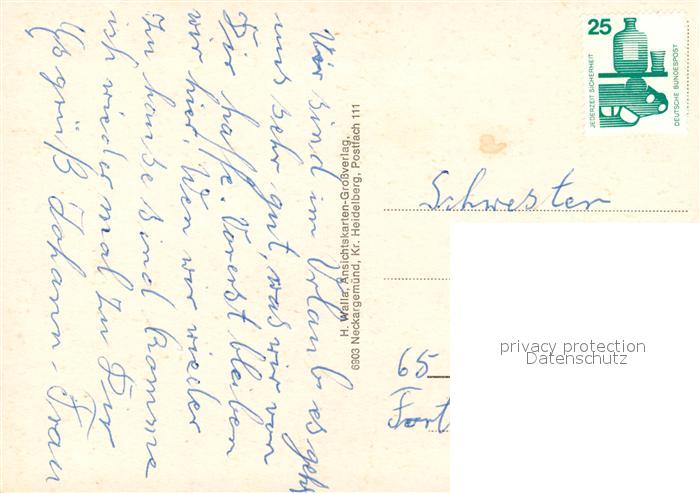 Wir sind im Urlaub es geht
uns sehr gut, was wir von
Dir hoffe. Vorerst bleiben
wir hier. Wen wir wieder
Zu hause sind komme
ich wieder mal zu Dir
Es grüß Johann, Frau
H. Walla, Ansichtskarten-Großverlag,
6903 Neckargemünd, Kr. Heidelberg, Postfach 111
25
JEDERZEIT SICHERHEIT
DEUTSCHE BUNDESPOST
Schwester
65
privacy protection
Datenschutz